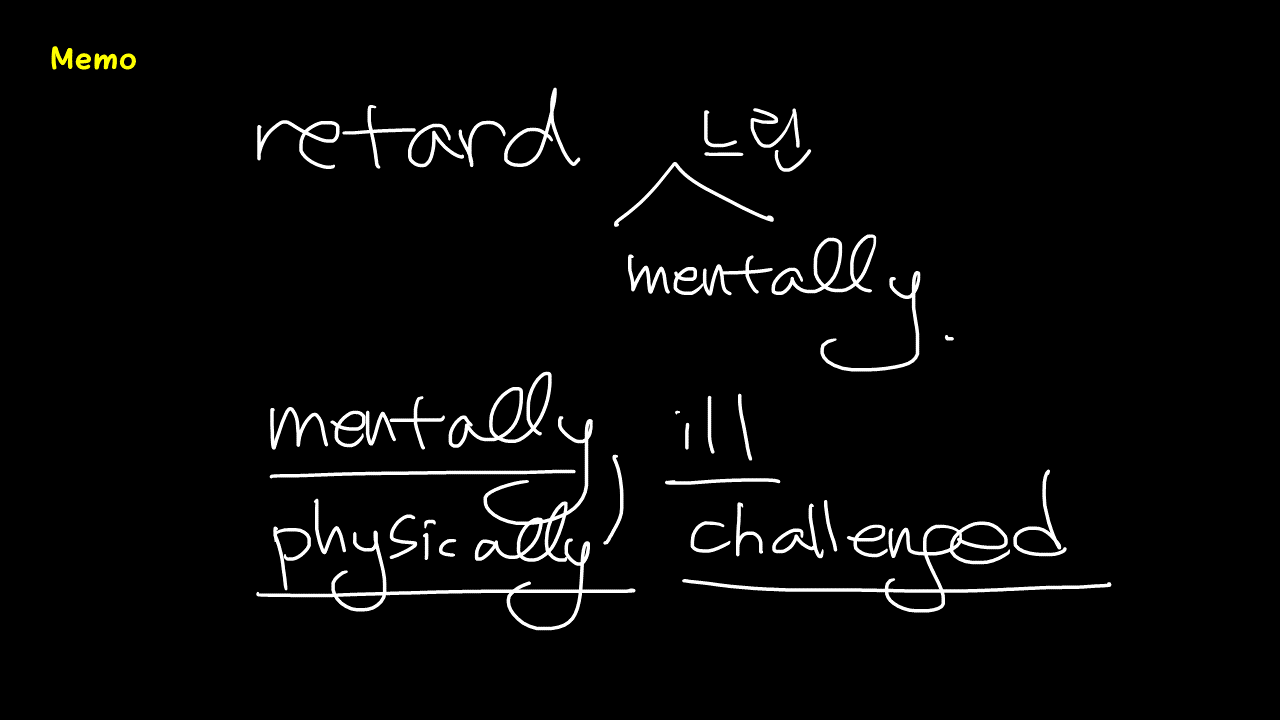 Memo
retard 느린
mentally.
mentally, ill
physically challenged